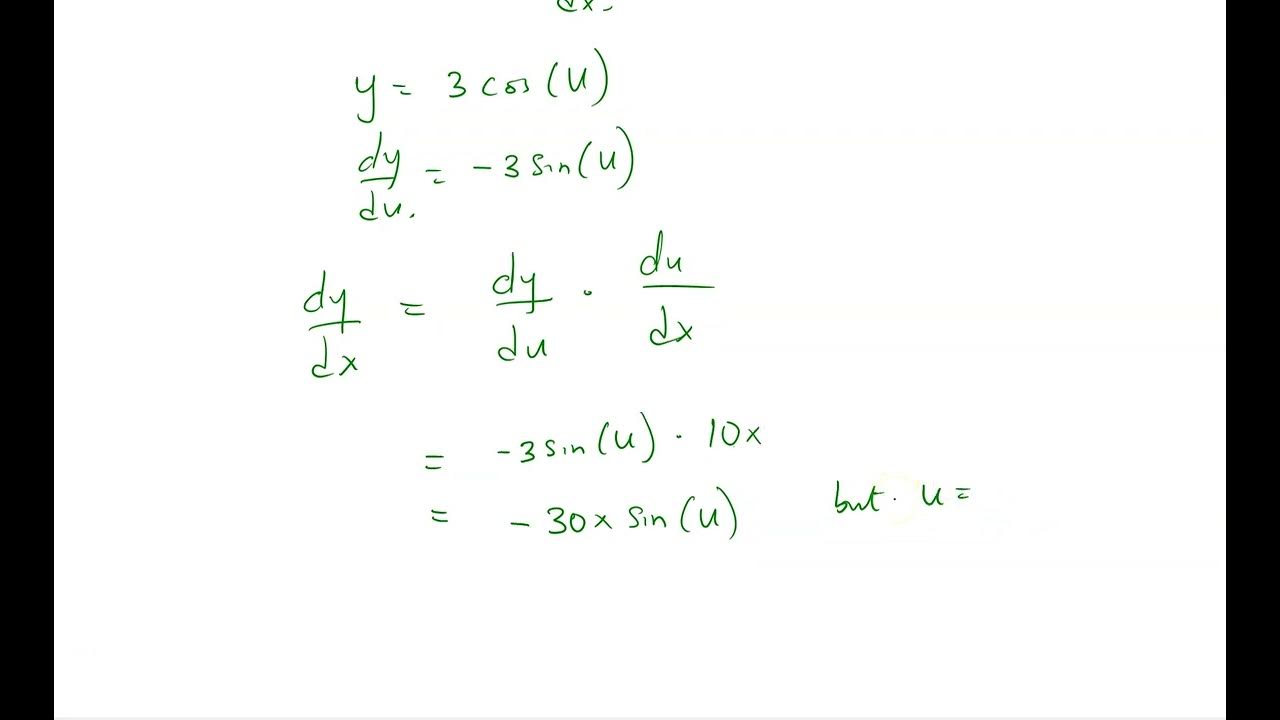 dx.
y = 3 cos(u)
dy/du. = -3 sin(u)
dy/dx = dy/du · du/dx
= -3 sin(u) · 10x
= -30x sin(u) but. u =